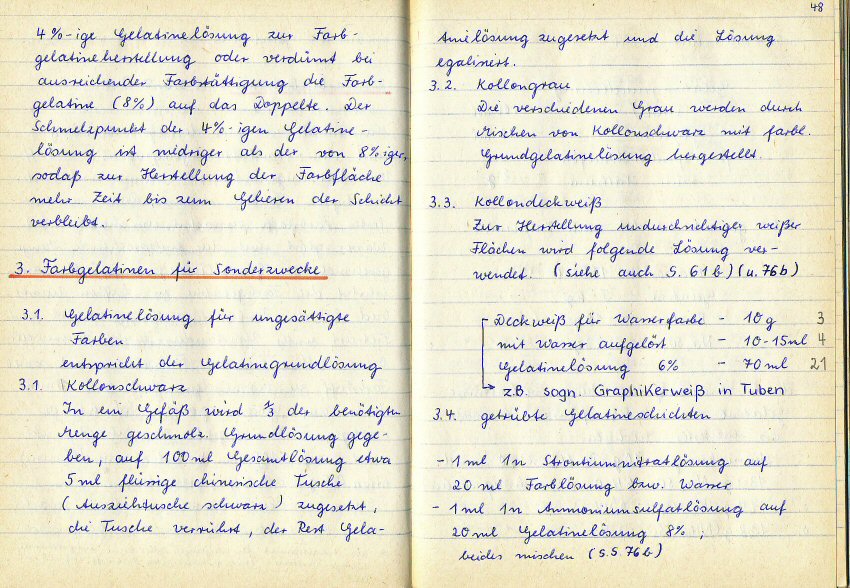 4%-ige Gelatinelösung zur Farb-
gelatineherstellung oder verdünnt bei
ausreichender Farbstättigung die Farb-
gelatine (8%) auf das Doppelte. Der
Schmelzpunkt der 4%-igen Gelatine-
lösung ist niedriger als der von 8%iger,
sodaß zur Herstellung der Farbfläche
mehr Zeit bis zum Gelieren der Schicht
verbleibt.
3. Farbgelatinen für Sonderzwecke
3.1. Gelatinelösung für ungesättigte
Farben
entspricht der Gelatinegrundlösung
3.1. Kollonschwarz
In ein Gefäß wird 1/3 der benötigten
Menge geschmolz. Grundlösung gege-
ben, auf 100 ml Gesamtlösung etwa
5 ml flüssige chinesische Tusche
(Ausziehtusche schwarz) zugesetzt,
die Tusche verrührt, der Rest Gela-
48
tinelösung zugesetzt und die Lösung
egalisiert.
3.2. Kollongrau
Die verschiedenen Grau werden durch
Mischen von Kollonschwarz mit farbl.
Grundgelatinelösung hergestellt.
3.3. Kollondeckweiß
Zur Herstellung undurchsichtiger weißer
Flächen wird folgende Lösung ver-
wendet. (siehe auch S. 61b) (u. 76b)
Deckweiß für Wasserfarbe - 10 g 3
mit Wasser aufgelöst - 10-15 ml 4
Gelatinelösung 6% - 70 ml 21
z.B. sogn. Graphikerweiß in Tuben
3.4. getrübte Gelatineschichten
- 1 ml 1n Strontiumnitratlösung auf
20 ml Farblösung bzw. Wasser
- 1 ml 1n Ammoniumsulfatlösung auf
20 ml Gelatinelösung 8%;
beides mischen (s.S. 76b)